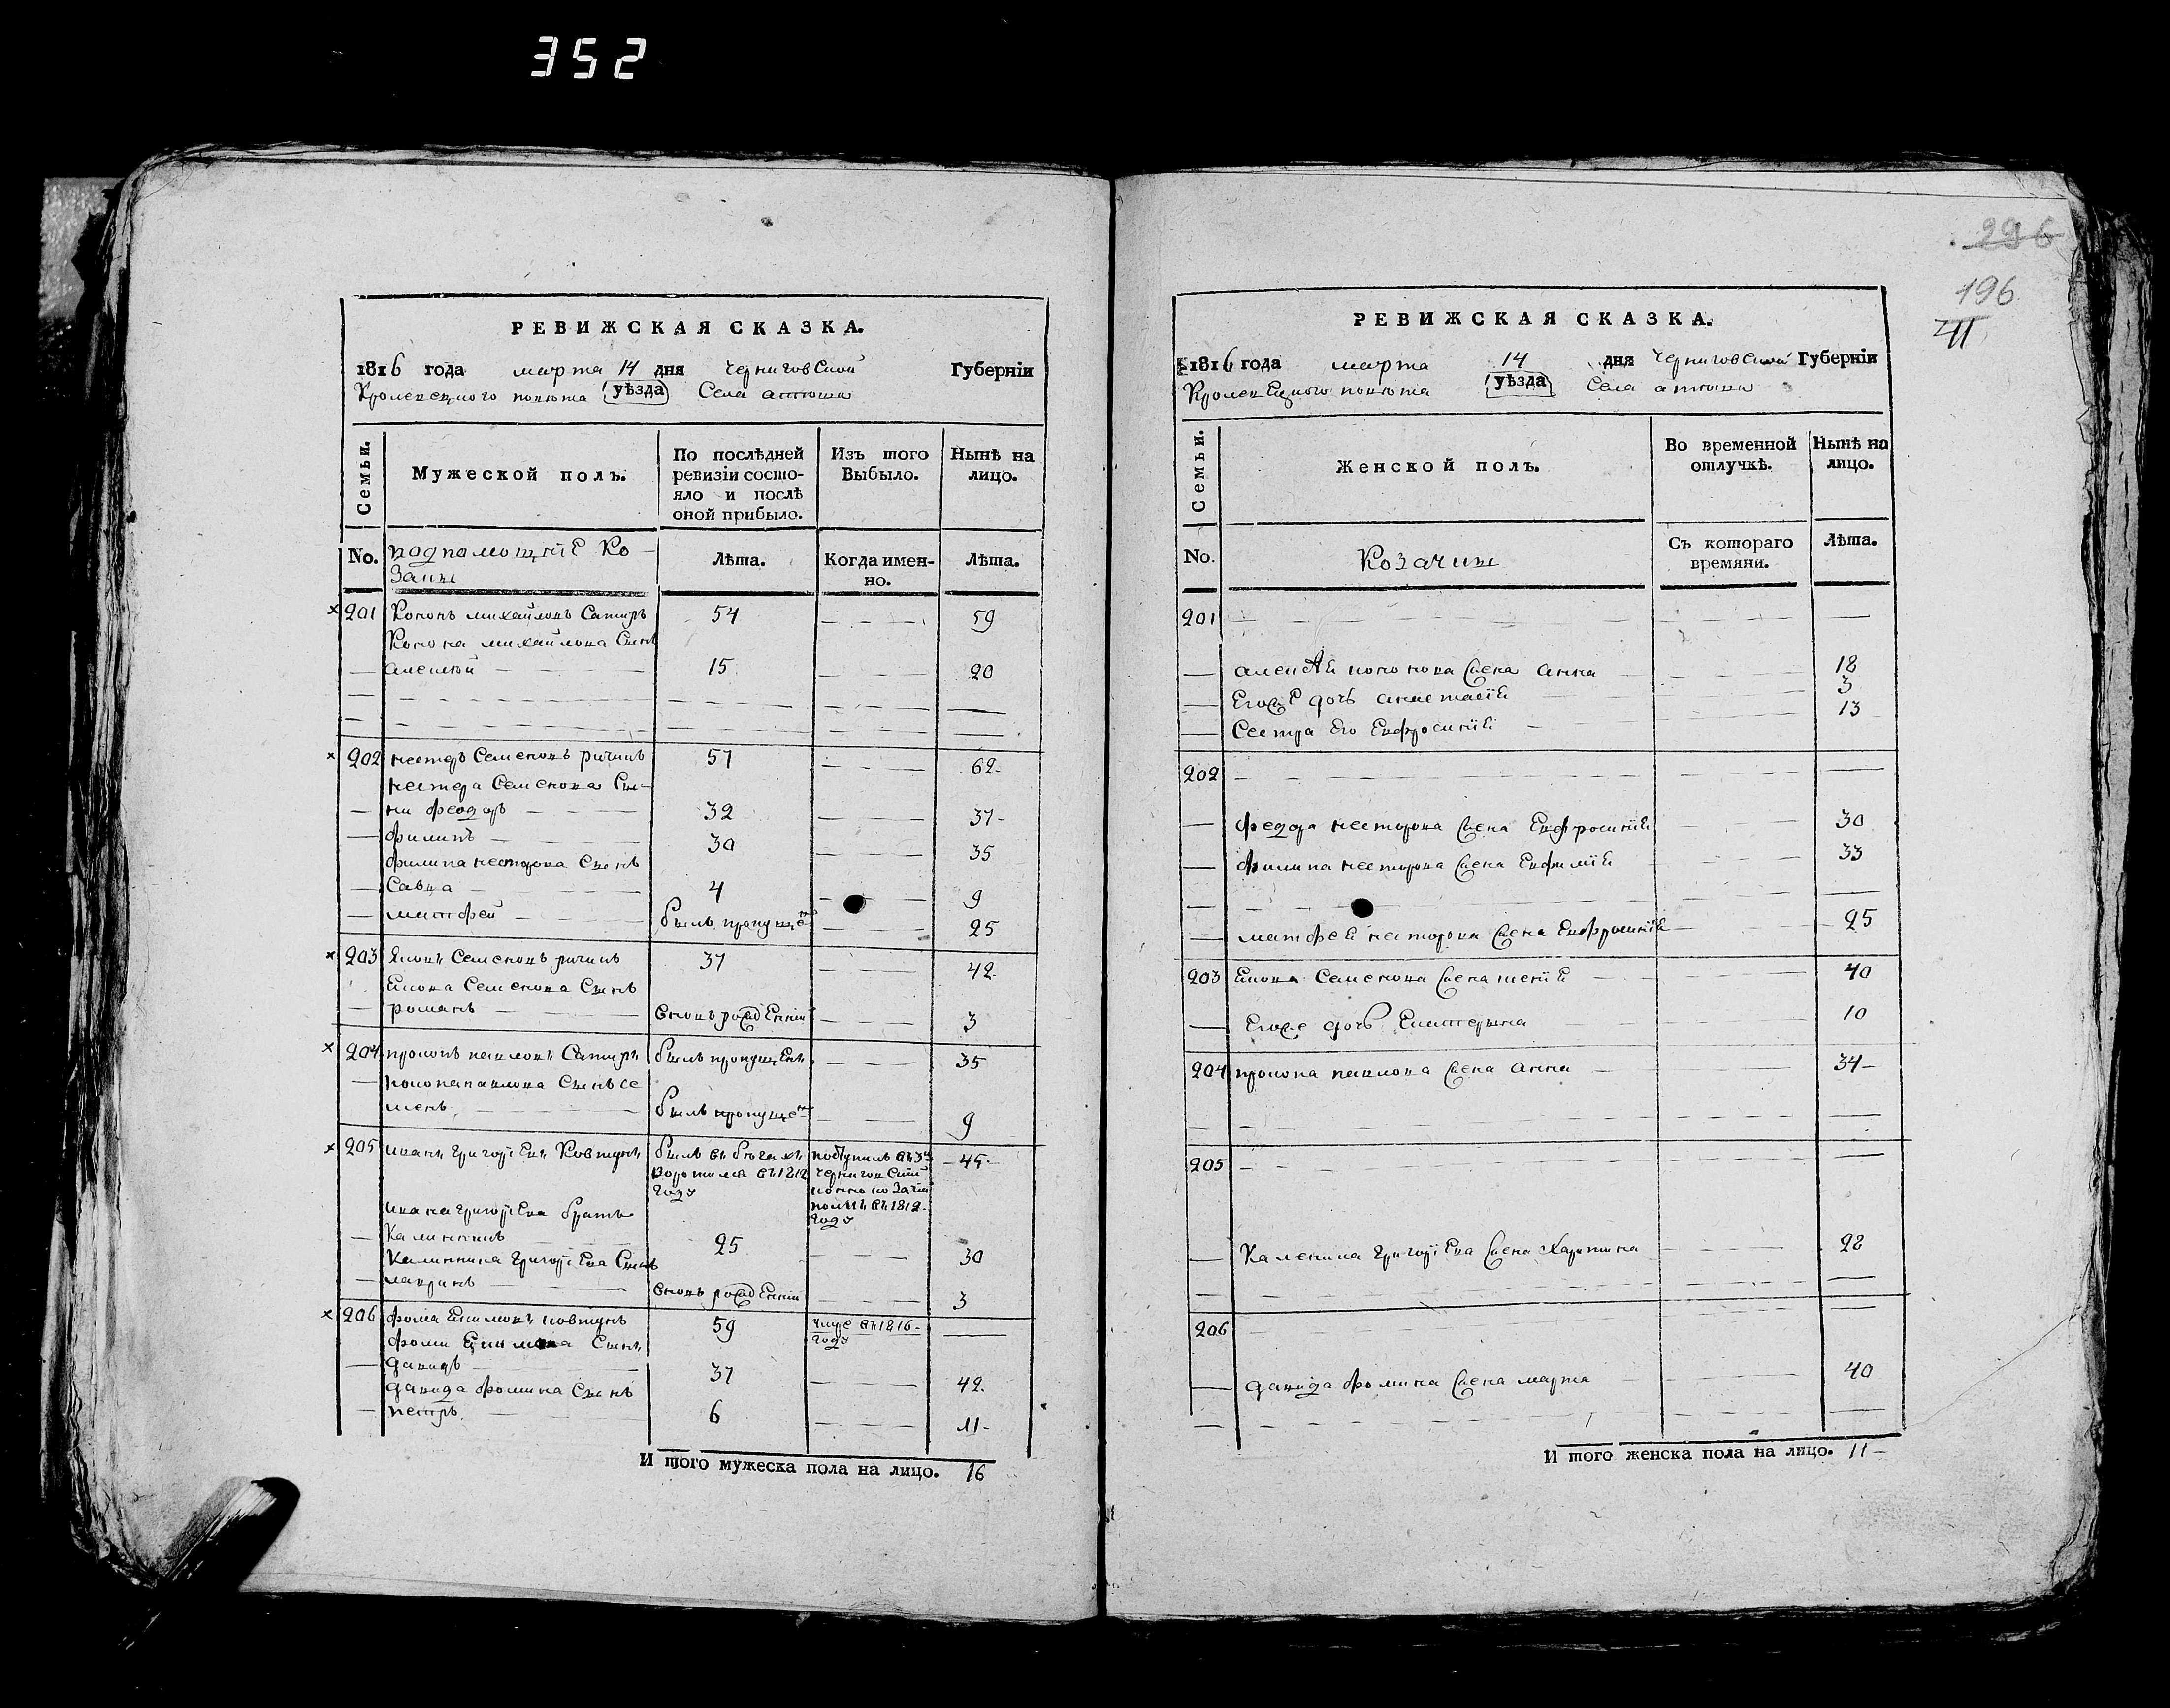 352
296
196
41
РЕВИЖСКАЯ СКАЗКА.
1816 года марта 14 дня Черниговской Губерніи
Кролевецкого повѣта уѣзда Села
Семьи.
Мужеской полъ.
По послѣдней ревизіи состо-
яло и послѣ
оной прибыло.
Изъ того Выбыло.
Нынѣ на лицо.
No.
подпомощніе Ко-
заки
Лѣта.
Когда имен-
но.
Лѣта.
201 Кононъ михайловъ 54 59
Конона михайлова Сынъ
алексѣй 15 20
202 нестеръ Семеновъ 57 62
нестера Семенова Сы-
ни феодоръ 32 37
филипъ 30 35
филипа нестерова Сынъ
Савка 4 9
матфей былъ пропущен 25
203 Яковъ Семеновъ 37 42
Якова Семенова Сынъ
романъ вновь рожденній 3
204 прокопъ павловъ былъ пропущенъ 35
павлова Сынъ Се
менъ былъ пропущен 9
205 иванъ григорѣевъ Ковтунъ былъ въ бѣгахъ поступилъ въ 3й 45
воротился въ 1812 черниговский
году
полкъ въ 1812
году
ивана григорѣева братъ
Калинникъ 25 30
Калинника григорѣева Сынъ
лавринъ вновь рожденній 3
206 фома Екимовъ ковтунъ 59 умре въ 1816
году
фоми Екимова Сынъ
давидъ 37 42
давида фомина Сынъ
петръ 6 11
И того мужеска пола на лицо. 16
РЕВИЖСКАЯ СКАЗКА.
1816 года марта 14 дня Черниговской Губерніи
Кролевецкого повѣта уѣзда Села
Семьи.
Женской полъ.
Во временной
отлучкѣ.
Нынѣ на
лицо.
No.
Козачки
Съ котораго
времяни.
Лѣта.
201
алексѣя кононова жена анна 18
Егоже дочь анастасія 3
Сестра Его Евфросинія 13
202
федора нестерова жена Евфросинія 30
филипа нестерова жена Евфимія 33
матфея нестерова жена Евфросинія 25
203 Якова Семенова жена 40
Егоже дочь Екатерина 10
204 прокопа павлова жена анна 34
205
Каленика григорѣева жена Харитина 28
206
давида фомина жена марта 40
И того женска пола на лицо. 11